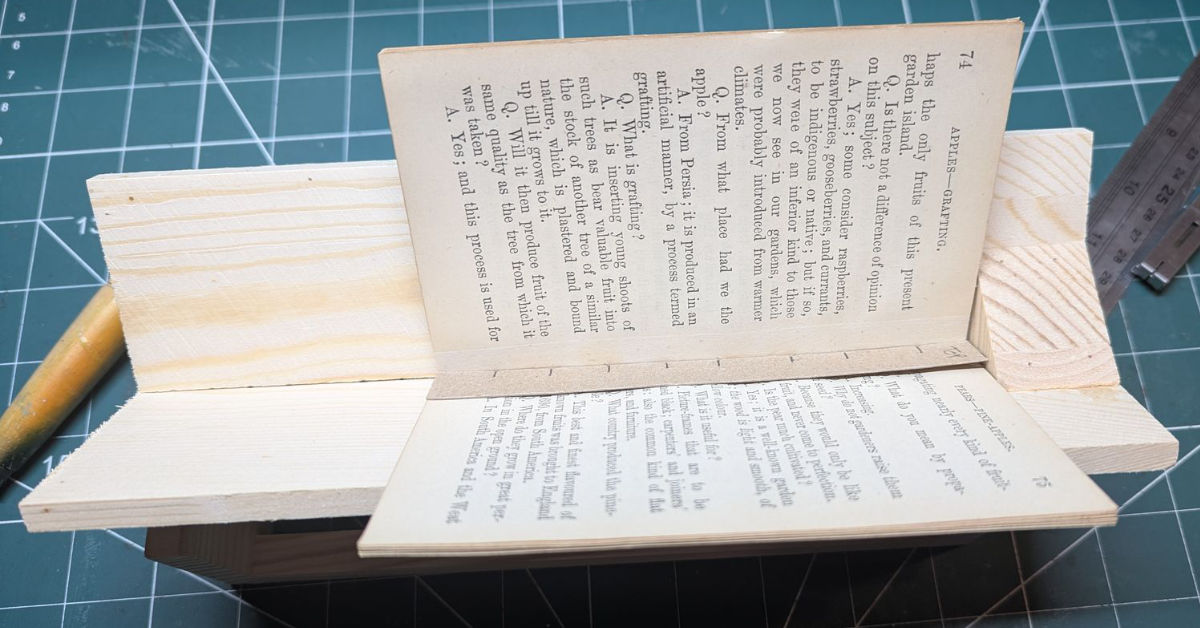 74
APPLES—GRAFTING.
haps the only fruits of this present
garden island.
Q. Is there not a difference of opinion
on this subject?
A. Yes; some consider raspberries,
strawberries, gooseberries, and currants,
to be indigenous or native; but if so,
they were of an inferior kind to those
we now see in our gardens, which
were probably introduced from warmer
climates.
Q. From what place had we the
apple?
A. From Persia; it is produced in an
artificial manner, by a process termed
grafting.
Q. What is grafting?
A. It is inserting young shoots of
such trees as bear valuable fruit into
the stock of another tree of a similar
nature, which is plastered and bound
up till it grows to it.
Q. Will it then produce fruit of the
same quality as the tree from which it
was taken?
A. Yes; and this process is used for
PEARS—PINE-APPLES.
75
nearly every kind of fruit.
What do you mean by propa-
Increasing.
Why do not gardeners raise them
seed?
Because they would only be like
fruit, and never come to perfection.
Is the pear much cultivated?
Yes; it is a well-known garden
the wood is light and smooth, of
colour.
What is it useful for?
frames that are to be
black; carpenters' and joiners'
also the common kind of flat
and furniture.
What country produced the pine-
This best and finest flavoured of
fruits was brought to England
from South America.
Where do they grow in great per-
in the open ground?
In South America and the West
5
6
7
8
9
10
11
25
26
27
28